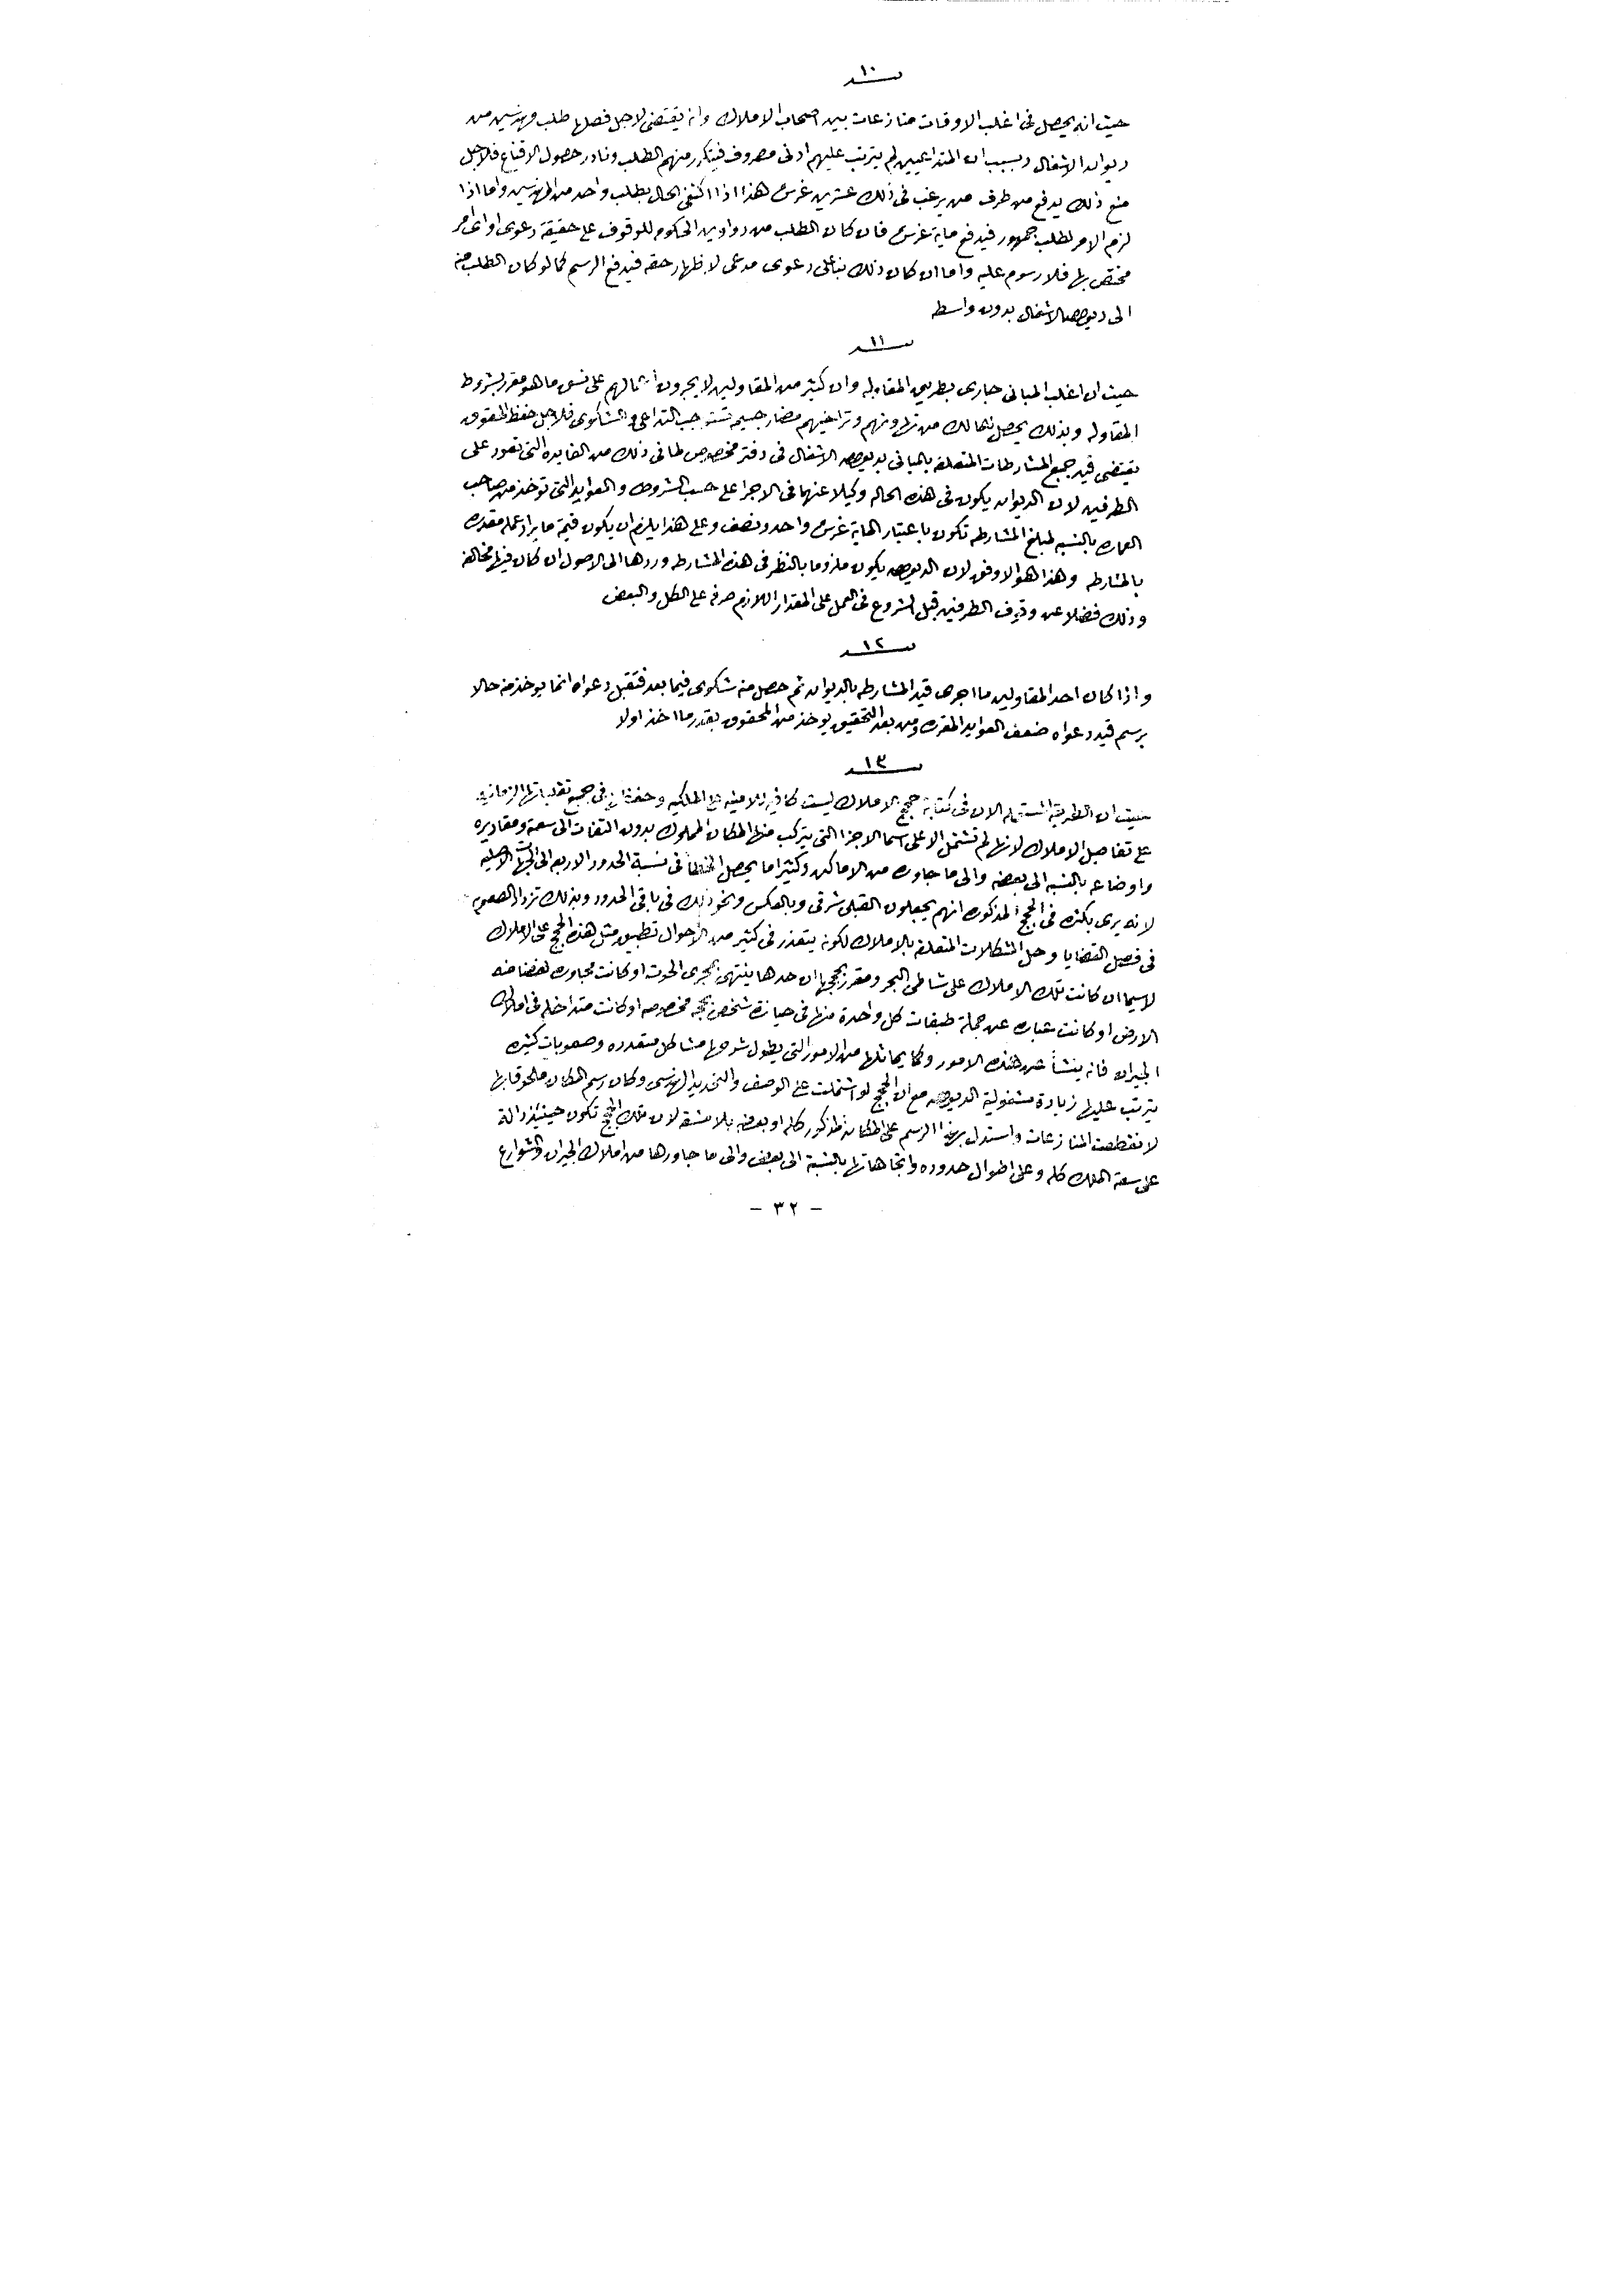 ١٠
حيث انه يحصل فى اغلب الاوقات منازعات بين اصحاب الاملاك وانه يقتضى لاجل فصلها طلب مهندسين من
ديوان الاشغال وبسبب ان المتداعيين لم يترتب عليهم ادنى مصروف فيتكرر منهم الطلب ونادر حصول الاقناع فلاجل
منع ذلك يدفع من طرف من يرغب فى ذلك عشرين غرش هذا اذا اكتفى الحال بطلب واحد من المهندسين واما اذا
لزم الامر لطلب جمهور فيدفع ماية غرش فان كان الطلب من دواوين الحكومه للوقوف على حقيقة دعوى او اى امر
مختص بها فلا رسوم عليه واما ان كان ذلك بنا على دعوى مدعى لاظهار حقه فيدفع الرسم كما لو كان الطلب منه
الى ديوان الاشغال بدون واسطه
١١
حيث ان اغلب المبانى جارى بطريق المقاوله وان كثير من المقاولين لا يجرون اشغالهم على نسق ما هو مقرر بشروط
المقاوله وبذلك يحصل للمالك من تهاونهم وتراخيهم مضار جسيمه تستوجب التداعى والشكوى فلاجل حفظ الحقوق
يقتضى قيد جميع المشارطات المتعلقه بالمبانى بديوان الاشغال فى دفتر مخصوص لما فى ذلك من الفايده التى تعود على
الطرفين لان الديوان يكون فى هذه الحاله وكيلا عنهما فى الاجرا على حسب الشروط والعوايد التى توخذ من صاحب
العماره بالنسبه لمبلغ المشارطه تكون باعتبار الماية غرش واحد ونصف وعلى هذا يلزم ان يكون قيمة ما يراد عمله مقدره
بالمشارطه وهذا هو الاوفق لان الديوان يكون ملزوما بالنظر فى هذه المشارطه وردها الى الاصول ان كان فيها مخالفه
وذلك فضلا عن وقوف الطرفين قبل الشروع فى العمل على المقدار اللازم صرفه على الكل والبعض
١٢
واذا كان احد المقاولين ما اجرى قيد المشارطه بالديوان ثم حصل منه شكوى فيما بعد فتقبل دعواه انما يوخذ منه حالا
برسم قيد دعواه ضعف العوايد المقرره ومن بعد التحقيق يوخذ من المحقوق بقدر ما اخذ اولا
١٣
حيث ان الطريقه المستعمله الان فى كتابة حجج الاملاك ليست كافيه للامنيه على الملكيه وحفظها فى جميع تقلباتها الزمانيه
على تفاصيل الاملاك لانها لم تشتمل الا على اسما الاجزا التى يتركب منها المكان المملوك بدون التفات الى سعته ومقاديره
واوضاعه بالنسبه الى بعضه والى ما جاوره من الاماكن وكثيرا ما يحصل الخطأ فى نسبة الحدود الاربعه الى الجهات الاصليه
لانه يرى بكثره فى الحجج المذكوره انهم يجعلون القبلى شرقى وبالعكس ونحو ذلك فى باقى الحدود وبذلك تزداد الصعوبه
فى فصل القضايا وحل المشكلات المتعلقه بالاملاك لكونه يتعذر فى كثير من الاحوال تطبيق مثل هذه الحجج على الاملاك
لاسيما ان كانت تلك الاملاك على شاطئ البحر ومقرر بحججها ان حدها ينتهى لمجرى الحوت او كانت مجاوره لفضا منه
الارض او كانت عباره عن جملة طبقات كل واحدة منها فى حيازة شخص بحجه مخصوصه او كانت متداخله فى املاك
الجيران فانه ينشأ عن هذه الامور وكما يماثلها من الامور التى يطول شرحها مشاكل متعدده وصعوبات كثيره
يترتب عليها زيادة مشغولية الديوان مع ان الحجج لو اشتملت على الوصف والتحديد الهندسى وكان رسم المكان ملحوقا بها
لانقطعت المنازعات واستدل بهذا الرسم على المكان المذكور كله او بعضه بلا مشقه لان تلك الحجج تكون حينئذ دالة
على سعة الملك كله وعلى اطوال حدوده واتجاهاتها بالنسبة الى بعض والى ما جاورها من املاك الجيران والشوارع
- ٣٢ -